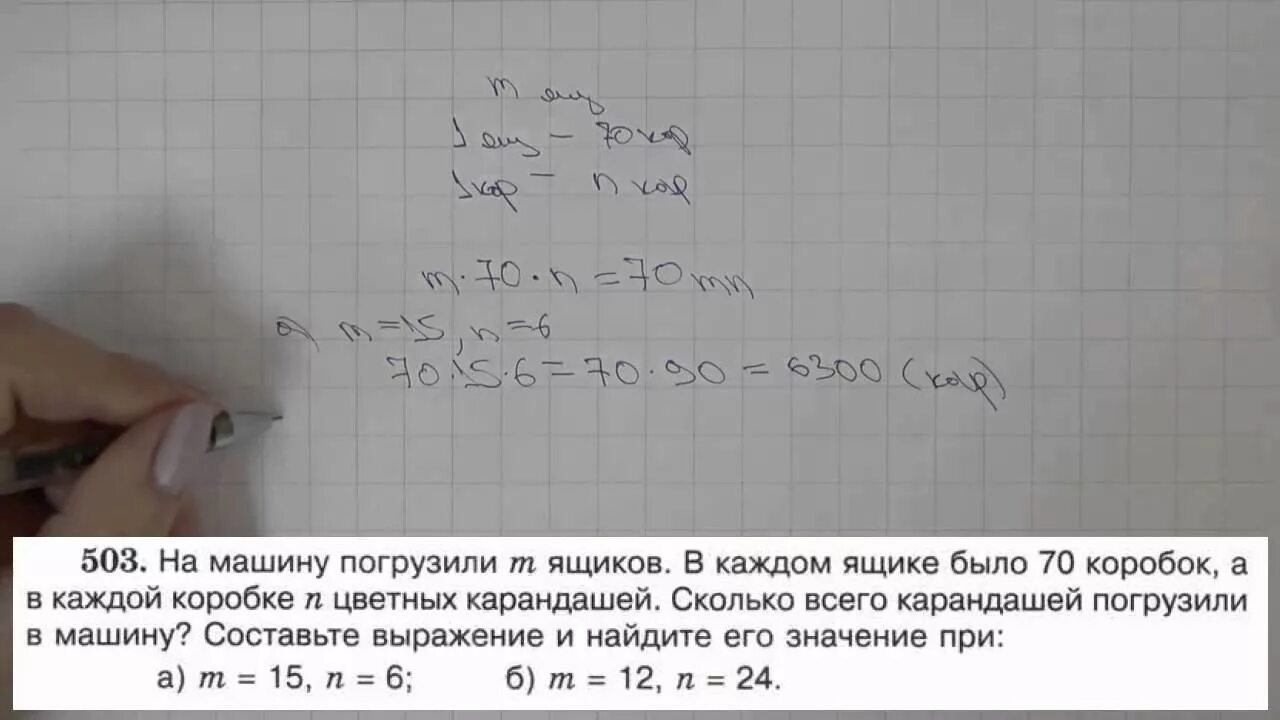 m ящ
1 ящ – 70 кор
1 кор – n кар
m·70·n = 70mn
а) m = 15, n = 6
70·15·6 = 70·90 = 6300 (кар)
503. На машину погрузили m ящиков. В каждом ящике было 70 коробок, а
в каждой коробке n цветных карандашей. Сколько всего карандашей погрузили
в машину? Составьте выражение и найдите его значение при:
а) m = 15, n = 6; б) m = 12, n = 24.